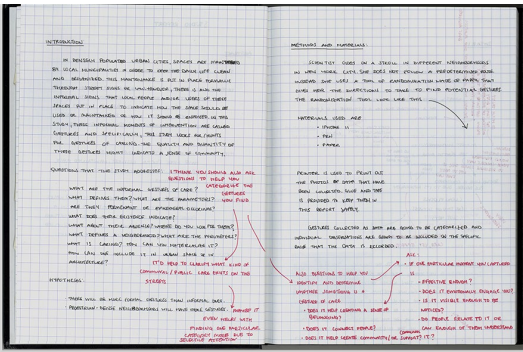 INTRODUCTION
IN DENSELY POPULATED URBAN CITIES, SPACES ARE
BY LOCAL MUNICIPALITIES IN ORDER TO KEEP THE DAILY LIFE CLEAN
AND ORGANIZED. THIS MAINTENANCE IS PUT IN PLACE FORMALLY
THROUGH STREET SIGNS OR THERE IS ALSO THE
INFORMAL SIGNS THAT LOCAL PEOPLE AND/OR USERS OF THESE
SPACES PUT IN PLACE TO INDICATE HOW THE SPACE SHOULD BE
USED OR MAINTAINED OR HOW IT SHOULD BE IN THIS
STUDY, THESE INFORMAL MOMENTS OF INTERVENTION ARE CALLED
GESTURES AND SPECIFICALLY, THIS STUDY LOOKS
FOR GESTURES OF CARING. THE QUALITY AND QUANTITY OF
THESE GESTURES MIGHT INDICATE A SENSE OF COMMUNITY.
QUESTIONS THAT THE STUDY ADDRESSES:
I THINK YOU SHOULD ALSO ASK
QUESTIONS TO HELP YOU
CATEGORIZE THE
GESTURES
YOU FIND
WHAT ARE THE INFORMAL GESTURES OF CARE?
WHAT DEFINES THEM? WHAT ARE THE PARAMETERS?
ARE THEY PERMANENT OR
WHAT DOES THEIR EXISTENCE INDICATE?
WHAT ABOUT THEIR ABSENCE? WHERE DO YOU LOOK FOR THEM?
WHAT DEFINES A NEIGHBORHOOD? WHAT ARE THE PERIMETERS?
WHAT IS CARING? HOW CAN YOU MATERIALIZE IT?
HOW CAN WE INCLUDE IT IN URBAN SPACE OR IN
ARCHITECTURE?
IT'D HELP TO CLARIFY WHAT KIND OF
COMMUNAL / PUBLIC CARE EXISTS ON THE
STREETS
HYPOTHESIS:
THERE WILL BE MORE FORMAL GESTURES THAN INFORMAL ONES.
NEIGHBOURHOODS WILL HAVE MORE GESTURES.
MAYBE IT
EVEN HELPS WITH
FINDING ONE PARTICULAR
CATEGORY MORE DUE TO
SELECTIVE ATTENTION
METHODS AND MATERIALS:
SCIENTIST GOES ON A STROLL IN DIFFERENT NEIGHBORHOODS
IN NEW YORK CITY. SHE DOES NOT FOLLOW A PREDETERMINED ROUTE
INSTEAD SHE USES A TOOL OF RANDOMIZATION MADE OF PAPER THAT
GIVES HER THE DIRECTIONS TO TAKE TO FIND POTENTIAL GESTURES
THE RANDOMIZATION TOOL LOOKS LIKE THIS
MATERIALS USED ARE
• IPHONE 11
• PEN
• PAPER
PRINTER IS USED TO PRINT OUT
THE PHOTOS OF DATA THAT HAVE
BEEN COLLECTED. GLUE AND TAPE
IS PROVIDED TO KEEP THEM IN
THIS REPORT SAFELY.
GESTURES COLLECTED AS DATA ARE GOING TO BE CATEGORIZED AND
INDIVIDUAL OBSERVATIONS ARE GOING TO BE INCLUDED ON THE SPECIFIC
PAGE THAT THE DATA IS RECORDED.
ALSO QUESTIONS TO HELP YOU
IDENTIFY AND DETERMINE
WHETHER SOMETHING IS A
GESTURE OF CARE
• DOES IT HELP CREATING A SENSE OF
BELONGING?
• DOES IT CONNECT PEOPLE?
• DOES IT HELP CREATE COMMUNITY / OR SUPPORT IT?
• IF ONE PARTICULAR MOMENT YOU CAPTURED
IS
• EFFECTIVE ENOUGH?
• DOES IT EMOTIONALLY ENGAGE YOU?
• IS IT VISIBLE ENOUGH TO BE
NOTICED?
• DO PEOPLE RELATE TO IT OR
CAN ENOUGH OF THEM UNDERSTAND